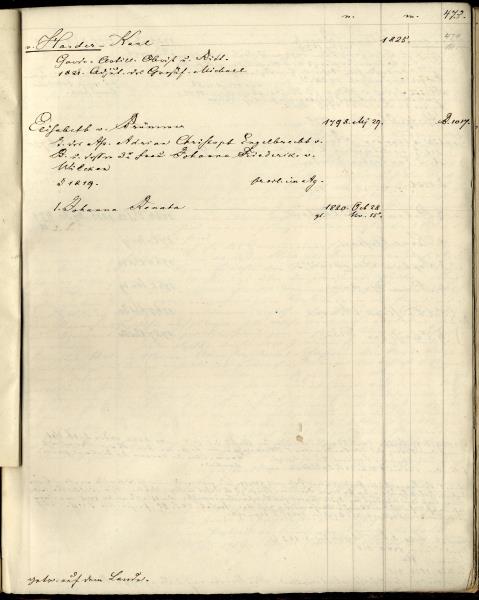 n. m. 473.
v. Harder - Karl 1825.
Garde-Artill. Obrist u. Ritt.
1821. Adjut. des Großf. Michael
Elisabeth v. Brümmer 1798. Mj 29. B. 1017.
T. des Ass. Adrian Christoph Engelbrecht v.
B. u. dessen 2ter Frau Johanna Friederike v.
Wulcken
1819.
1. Johanna Renata 1820. Oct 28.
gt. Nov. 15.
getr. auf dem Lande.